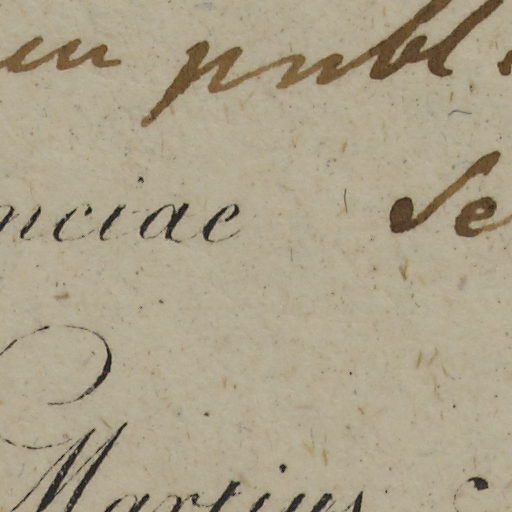 publ.
nciae Se
Martius